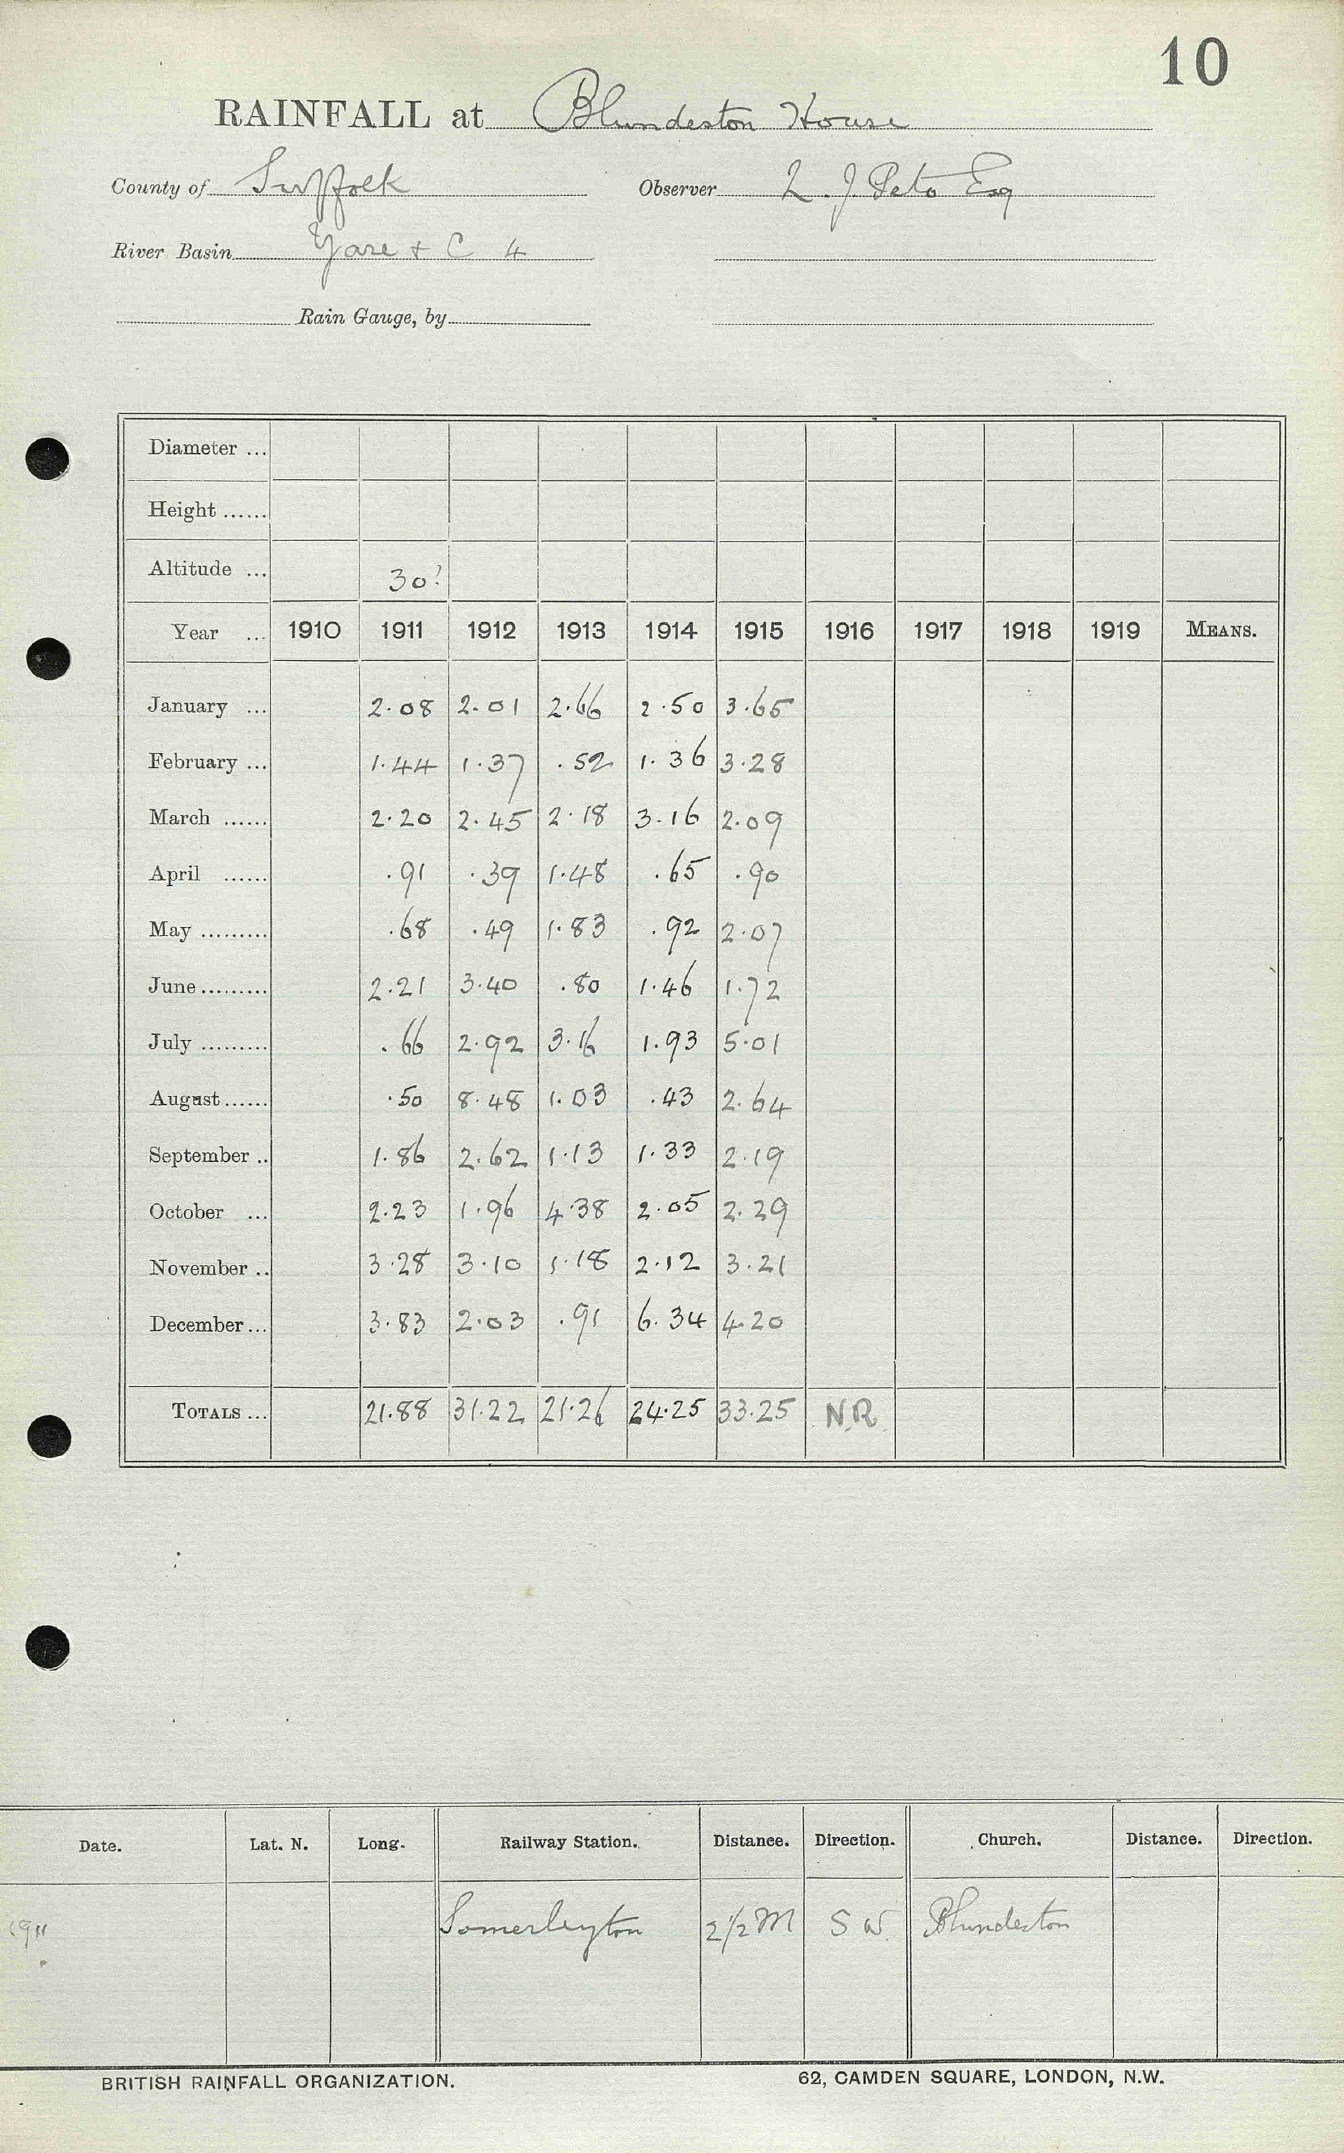 10
RAINFALL at Blundeston House
County of Suffolk Observer L. J. Peto Esq
River Basin Yare & C 4
Rain Gauge, by
Diameter ...
Height ......
Altitude ... 30?
Year ... 1910 1911 1912 1913 1914 1915 1916 1917 1918 1919 MEANS.
January ... 2.08 2.01 2.66 2.50 3.65
February ... 1.44 1.37 .52 1.36 3.28
March ...... 2.20 2.45 2.18 3.16 2.09
April ...... .91 .39 1.48 .65 .90
May ......... .68 .49 1.83 .92 2.07
June ......... 2.21 3.40 .80 1.46 1.72
July ......... .66 2.92 3.16 1.93 5.01
August ...... .50 8.48 1.03 .43 2.64
September .. 1.86 2.62 1.13 1.33 2.19
October ... 2.23 1.96 4.38 2.05 2.29
November .. 3.28 3.10 1.18 2.12 3.21
December ... 3.83 2.03 .91 6.34 4.20
TOTALS ... 21.88 31.22 21.26 24.25 33.25 N.R.
Date. Lat. N. Long. Railway Station. Distance. Direction. Church. Distance. Direction.
1911 Somerleyton 2 1/2 M S W. Blundeston
BRITISH RAINFALL ORGANIZATION. 62, CAMDEN SQUARE, LONDON, N.W.